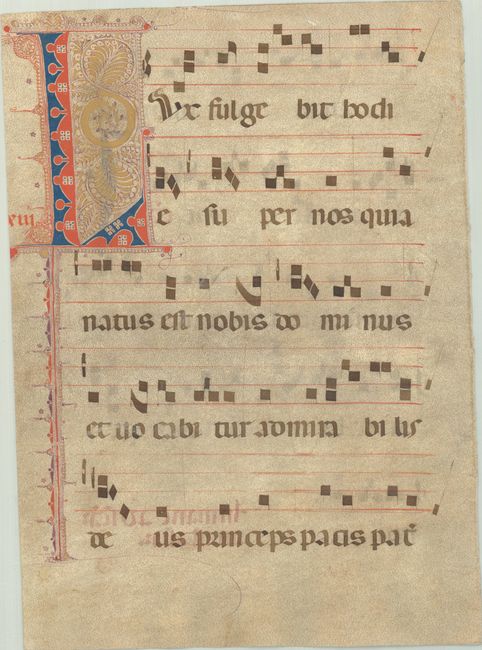 Lux fulge bit hodi
e su per nos quia
natus est nobis do mi nus
et uo cabi tur admira bi lis
de us princeps pacis pat̄